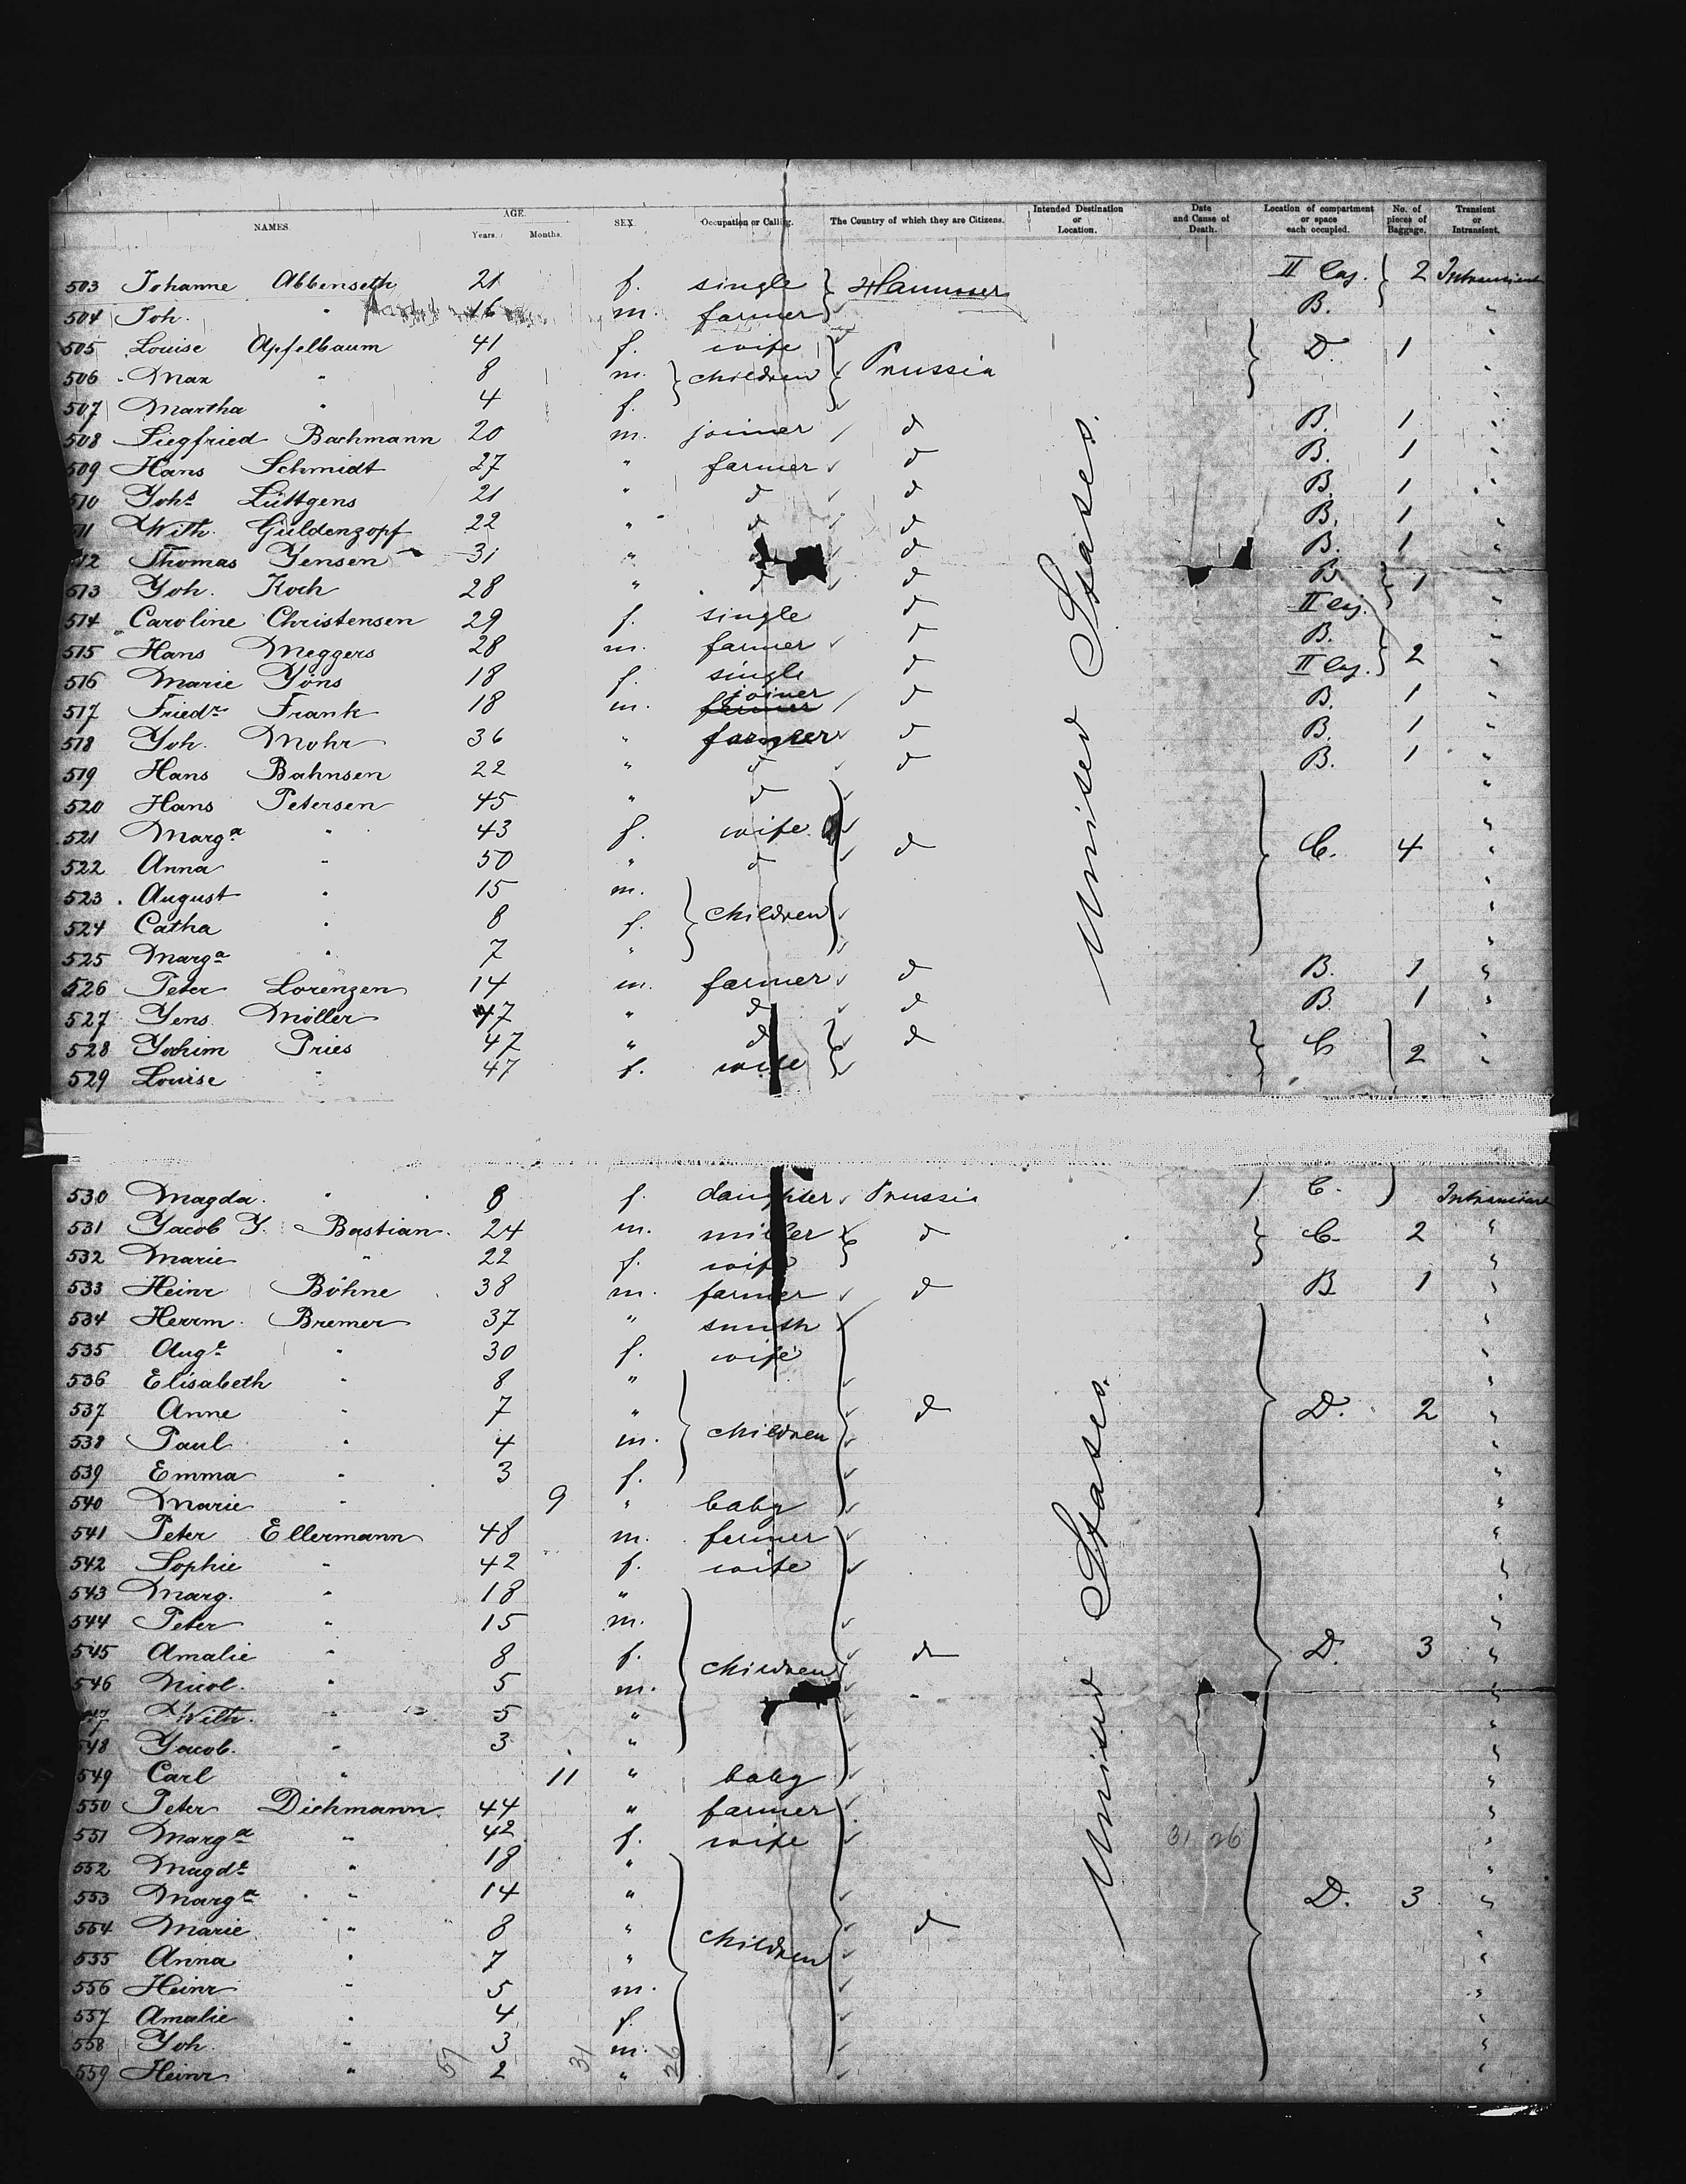 NAMES. AGE. Years. Months. SEX. Occupation or Calling. The Country of which they are Citizens. Intended Destination or Location. Date and Cause of Death. Location of compartment or space each occupied. No. of pieces of Baggage. Transient or Intransient.
503 Johanne Abbenseth 21 f. single } Hannover II Caj. } 2 Intransient
504 Joh. " 16 m. farmer B. "
505 Louise Apfelbaum 41 f. wife } Prussia } D. 1 "
506 Max " 8 m. } children "
507 Martha " 4 f. "
508 Siegfried Bachmann 20 m. joiner d B. 1 "
509 Hans Schmidt 27 " farmer d B. 1 "
510 Johs Lüttgens 21 " d d B. 1 "
11 Wilh. Güldenzopf 22 " d d B. 1 "
12 Thomas Jensen 31 " d B. 1 "
513 Joh. Koch 28 " d d B } 1
514 Caroline Christensen 29 f. single d II Caj. "
515 Hans Meggers 28 m. farmer d B. } 2 "
516 Marie Jöns 18 f. single d II Caj. "
517 Friedr Frank 18 m. joiner d B. 1 "
518 Joh. Mohr 36 " farmer d B. 1 "
519 Hans Bahnsen 22 " d d B. 1 "
520 Hans Petersen 45 " d "
521 Marga " 43 f. wife "
522 Anna " 50 " d d C. 4 "
523 August " 15 m. } children "
524 Catha " 8 f. "
525 Marga " 7 " "
526 Peter Lorenzen 14 m. farmer d B. 1 "
527 Jens Möller 47 " d d B. 1 "
528 Jochim Pries 47 " d } d } C } 2 "
529 Louise " 47 f. wife "
United States.
530 Magda " 8 f. daughter Prussia C. Intransient
531 Jacob J. Bastian 24 m. miller } d } C. 2 "
532 Marie " 22 f. wife "
533 Heinr Böhne 38 m. farmer d B 1 "
534 Herrm. Bremer 37 " smith "
535 Auge " 30 f. wife "
536 Elisabeth " 8 " } children "
537 Anne " 7 " d D. 2 "
538 Paul " 4 m. "
539 Emma " 3 f. "
540 Marie " 9 " baby "
541 Peter Ellermann 48 m. farmer "
542 Sophie " 42 f. wife "
543 Marg. " 18 " } children "
544 Peter " 15 m. "
545 Amalie " 8 f. d D. 3 "
546 Nicol. " 5 m. "
Wilh. " 5 " "
548 Jacob. " 3 " "
549 Carl " 11 " baby "
550 Peter Dickmann 44 " farmer "
551 Marga " 42 f. wife 31 26 "
552 Magde " 18 " } children "
553 Marga " 14 " D. 3 "
554 Marie " 8 " d "
555 Anna " 7 " "
556 Heinr " 5 m. "
557 Amalie " 4 f. "
558 Joh. " 3 m. "
559 Heinr " 2 " "
United States.
57 31 26